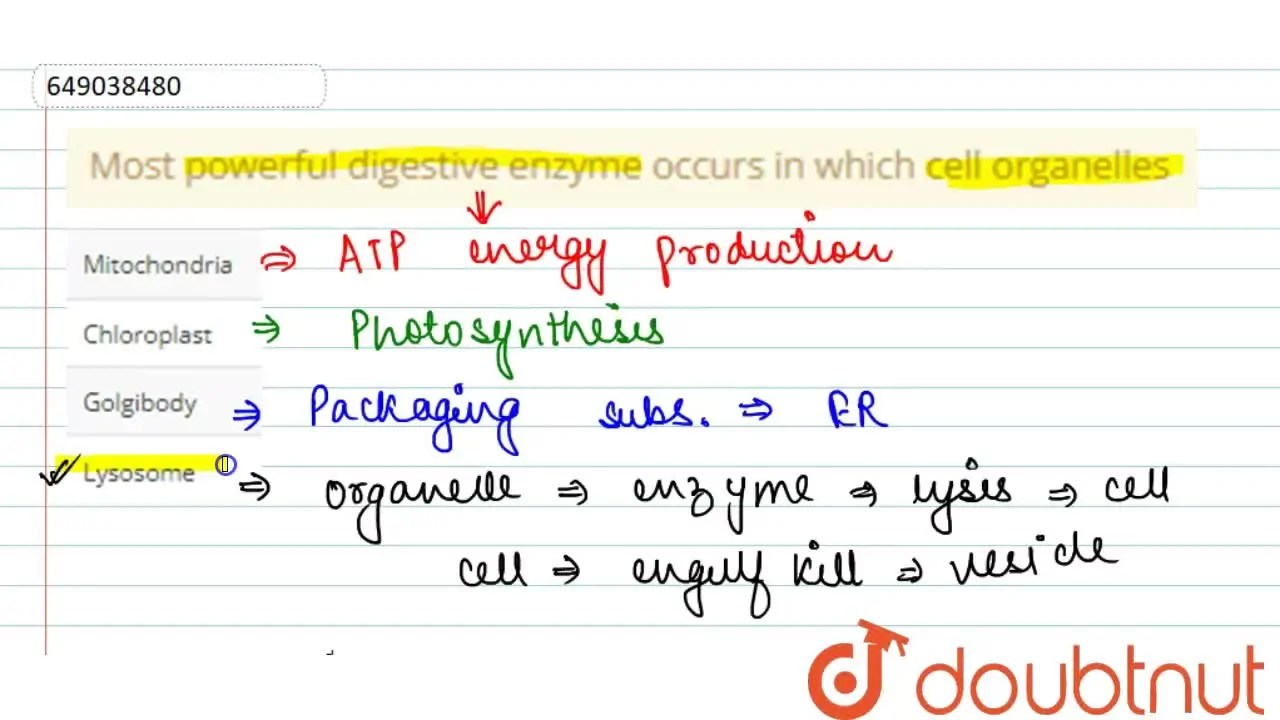 649038480
Most powerful digestive enzyme occurs in which cell organelles
Mitochondria ⇒ ATP energy production
Chloroplast ⇒ Photosynthesis
Golgibody ⇒ Packaging subs. ⇒ ER
Lysosome ⇒ organelle ⇒ enzyme ⇒ lysis ⇒ cell
cell ⇒ engulf kill ⇒ vesicle
doubtnut